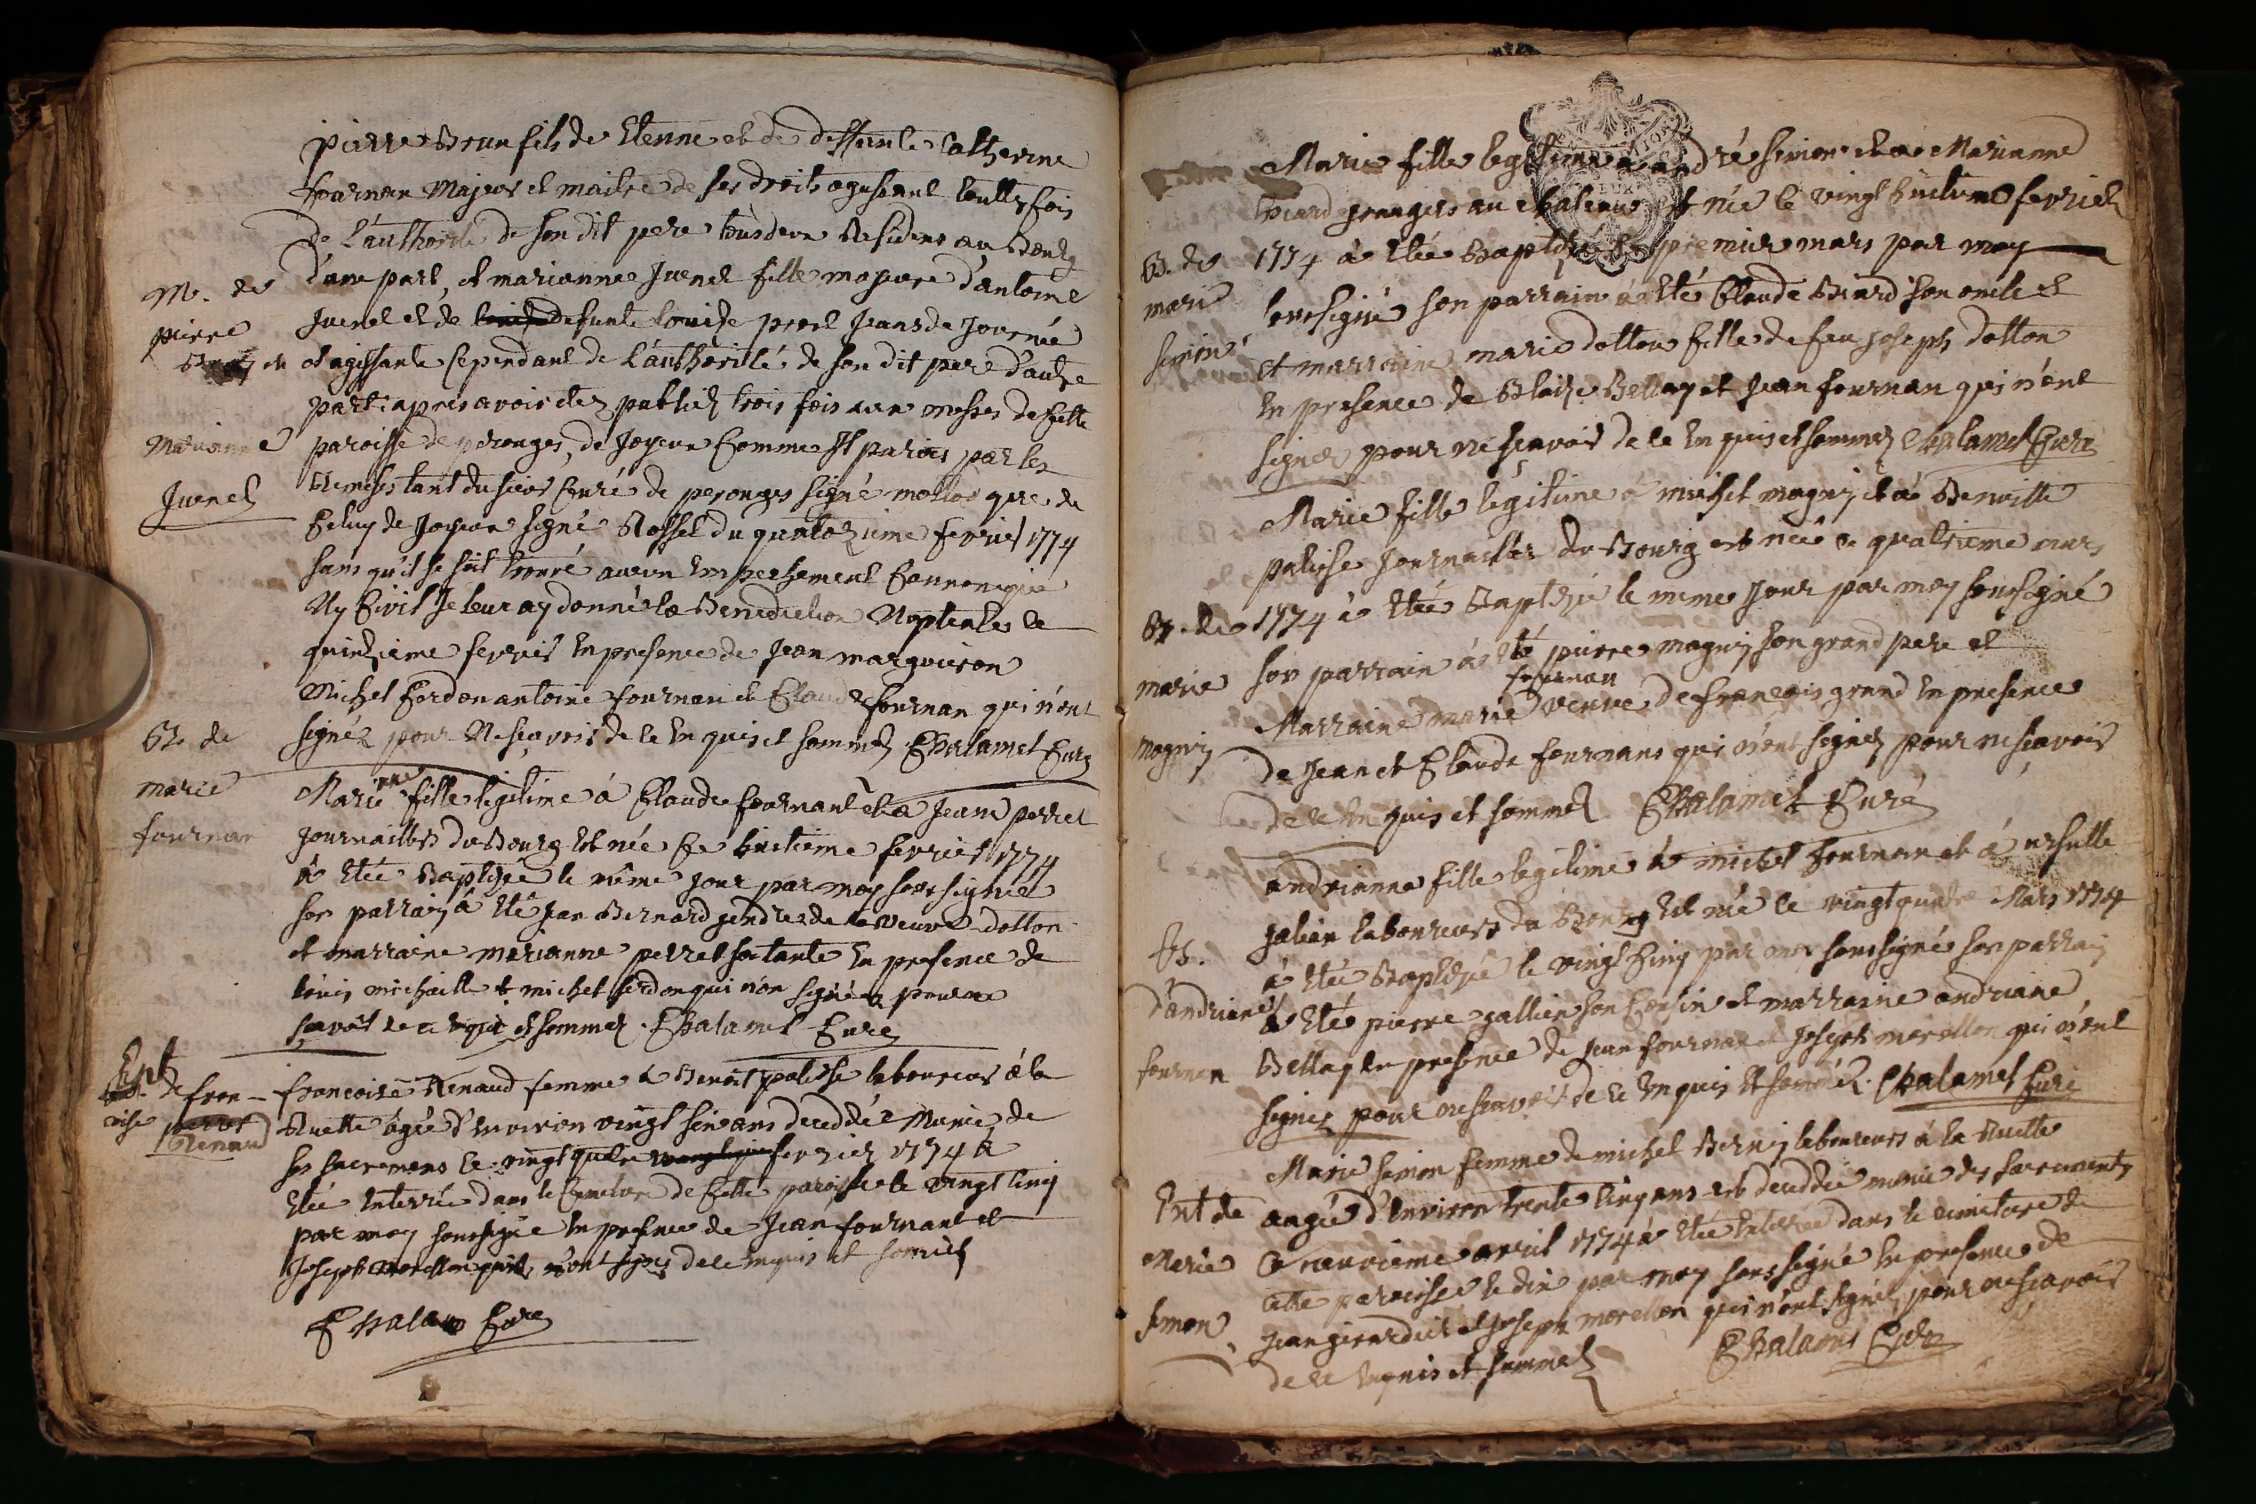 pierre Brun fils de Etenne et de deffunte Catherine
fournan Majeur et maitre de ses droits agissant touttefois
de l'authorité de son dit pere tous deux Residens au Bourg
M. de
d'une part, et marianne Juenet fille majeure d'antoine
pierre
Juenet et de defunte Louise prost Jeans de Journée
Brun et
et agissante Cependant de l'authorité de son dit pere d'autre
part: apres avoir etez publiez trois fois aux messes de Cette
Marianne
paroisse de perouges, de Joyeux Comme Il parois par les
Juenet
Remises tant du sieur Curé de perouges signé que de
Celuy de Joyeux signé Rosset du quatorzieme fevrier 1774
sans qu'il se soit trouvé aucun Empechement Cannonique
Ny Civil Je leur ay donné la Benediction Nuptiale le
quinzieme fevrier En presence de Jean marguiron
Michel Cordon antoine fournan et Claude fournan qui n'ont
signéz pour Ne sçavoir de ce Enquis et sommez Chalamet Curé
B. de
marie
fournan
Marianne fille legitime à Claude fournant et a Jeanne perret
Journailles du Bourg est née Ce huitieme fevrier 1774
à Etée Baptizée le même jour par moy soussignéé
son parrain à Eté Jean Bernard gendre de la veuve dotton
et marraine marianne perret sa tante En presence de
louis michaille et michel Cordon qui n'on signéz pour ne
sçavoir de ce Enquis et sommez. Chalamet Curé
Ent
de fran-
coise
Renaud
francoise Renaud femme à Benoit palisse laboureur à la
Ruette âgée d'Environ vingt six ans deceddée Munie de
ses sacremens le vingt quatre fevrier 1774 à
Etée Enterrée dans le Cimetiere de Cette paroisse le vingt Cinq
par moy soussigné En presence de Jean fournant et
Joseph morellon qui n'ont signez de ce enquis et sommés
Chalamet Curé
Marie fille legitime a andré simon et a Marianne
Biard grangers au chateau est née le vingt huitieme fevrier
B. de
1774 à Etée Baptizée le premier mars par moy
marie
soussigné son parrain à Eté Claude Biard son oncle et
simon
et marraine marie dotton fille de feu Joseph dotton
En presence de Blaise Bellay et Jean fournan qui n'ont
signez pour ne sçavoir de ce Enquis et sommez Chalamet Curé
Marie fille legitime à michel magnin et à Benoitte
palisse Journaillers du Bourg est née le quatrieme mars
B. de
1774 à Etée Baptizée le meme Jour par moy soussigné
marie
son parrain à Eté pierre magnin son grand pere et
magnin
Marraine marie fournan veuve de francois grand En presence
de Jean et Claude fournans qui n'ont signez pour ne sçavoir
de ce Enquis et sommez Chalamet Curé
andrianne fille legitime à michel fournan et à ursulle
galien laboureurs du Bourg est née le vingt quatre Mars 1774
B.
à Etée Baptizée le vingt Cinq par moy soussigné son parrain
d'andriane
à Eté pierre gallien son Cousin et marraine andriane
fournan
Bellay En presence de Jean fournan et Joseph morellon qui n'ont
signez pour ne sçavoir de ce Enquis et sommez. Chalamet Curé
Marie simon femme de michel Bernin laboureurs à la Ruette
Ent de
augée d'Environ trente Cinq ans est deceddée munie des sacrements
Marie
le neuvieme avril 1774 à Etée Enterrée dans le cimetiere de
simon
cette paroisse le dix par moy soussigné En presence de
Jean girardet et Joseph morellon qui n'ont signez pour ne sçavoir
de ce Enquis et sommez Chalamet Curé